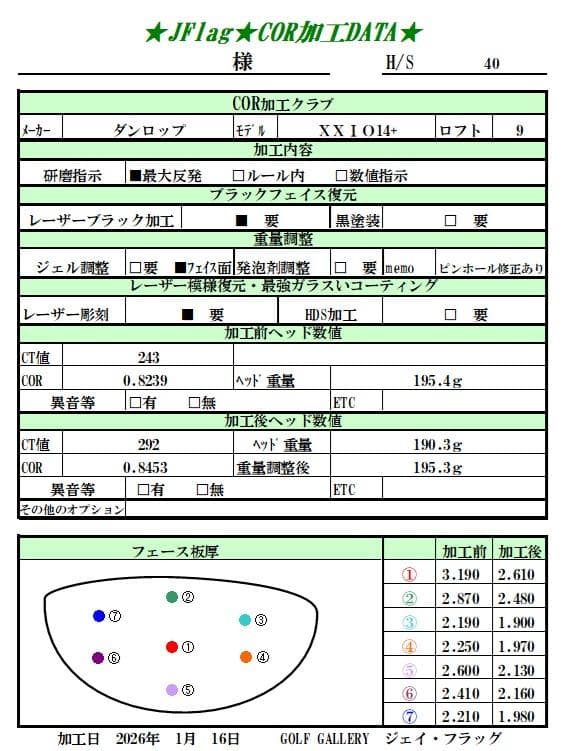 ★JFlag★COR加工DATA★
様 H/S 40
COR加工クラブ
ﾒｰｶｰ ダンロップ ﾓﾃﾞﾙ ＸＸＩＯ14+ ロフト 9
加工内容
研磨指示 ■最大反発 □ルール内 □数値指示
ブラックフェイス復元
レーザーブラック加工 ■ 要 黒塗装 □ 要
重量調整
ジェル調整 □要 ■ﾌｪｲｽ面 発泡剤調整 □ 要 memo ピンホール修正あり
レーザー模様復元・最強ガラスいコーティング
レーザー彫刻 ■ 要 HDS加工 □ 要
加工前ヘッド数値
CT値 243
COR 0.8239 ﾍｯﾄﾞ重量 195.4g
異音等 □有 □無 ETC
加工後ヘッド数値
CT値 292 ﾍｯﾄﾞ重量 190.3g
COR 0.8453 重量調整後 195.3g
異音等 □有 □無 ETC
その他のオプション
フェース板厚 加工前 加工後
① 3.190 2.610
② 2.870 2.480
③ 2.190 1.900
④ 2.250 1.970
⑤ 2.600 2.130
⑥ 2.410 2.160
⑦ 2.210 1.980
②
⑦
③
①
⑥
④
⑤
加工日 2026年 1月 16日 GOLF GALLERY ジェイ・フラッグ